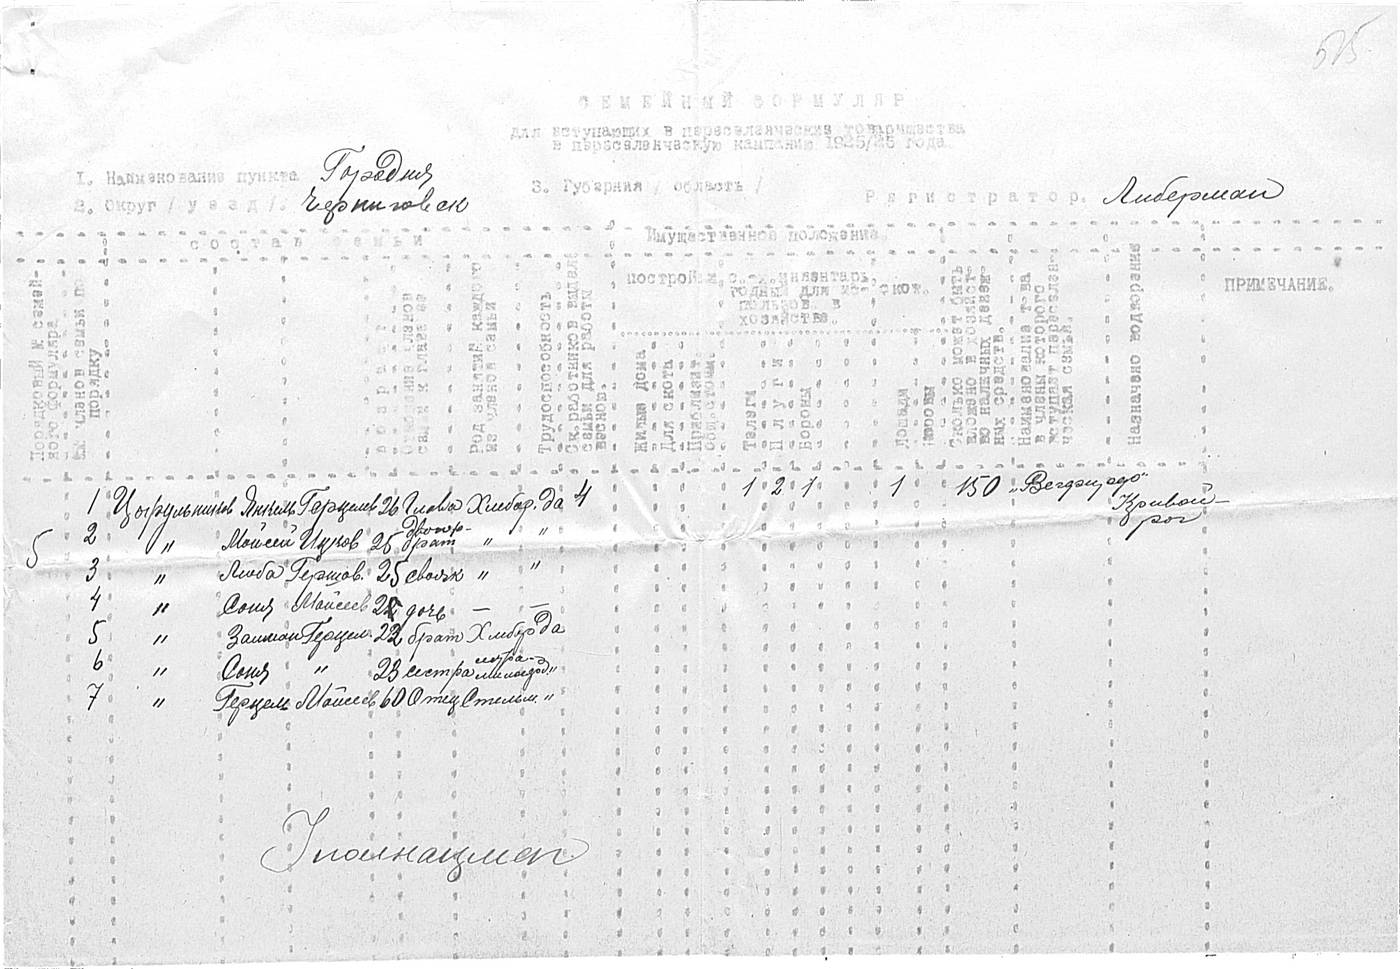 525
СЕМЕЙНЫЙ ФОРМУЛЯР
для вступающих в переселенческие товарищества
в переселенческую кампанию 1925/26 года.
1. Наименование пункта Городня
2. Округ / уезд /. Черниговск
3. Губерния / область /
Регистратор. Либерман
состав семьи
Имущественное положение.
Порядковый № семейного формуляра
№№ членов семьи по порядку
возраст
Отношение членов семьи к главе ее
Род занятий каждого из членов семьи
Трудоспособность
Ск. работников выдала семья для работы весною.
постройки.
с.-х. инвентарь, годный для использов. в хозяйстве.
скот.
Жилые дома
Для скота
Приблизит.
Телеги
Плуги
Бороны
Лошади
Коровы
Сколько может быть вложено в хозяйство наличных денежных средств.
Наименование т-ва в члены которого вступает переселенческая семья.
Назначено водворение
ПРИМЕЧАНИЕ.
5
1 Цырульников Янкель Герцелев 26 Глава Хлебор. да 4 1 2 1 1 150 Кривой-рог
2 " Мойсей Ицков 25 двоюр-брат " "
3 " Люба Гершов. 25 свояк " "
4 " Соня Мойсеев дочь — —
5 " Залман Герцел. 22 брат Хлебор да
6 " Соня " 23 сестра "
7 " Герцель Мойсеев 60 Отец Стельм. "